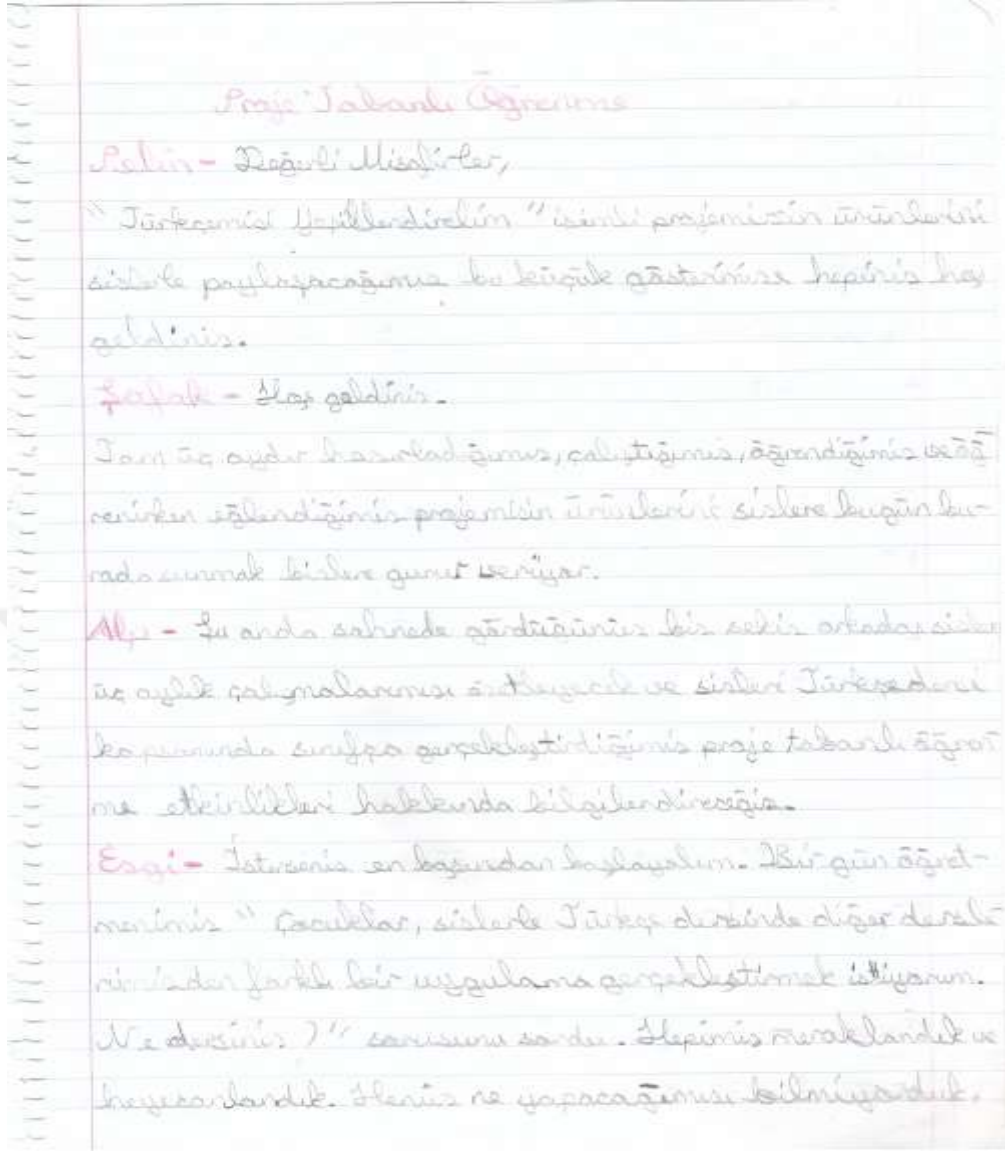 Proje Tabanlı Öğrenme
Pelin - Değerli Misafirler,
" Türkçemizi Yeşillendirelim " isimli projemizin ürünlerini
sizlerle paylaşacağımız bu küçük gösterimize hepiniz hoş
geldiniz.
Şafak - Hoş geldiniz.
Tam üç aydır hazırladığımız, çalıştığımız, öğrendiğimiz ve öğ
renirken eğlendiğimiz projemizin ürünlerini sizlere bugün bu-
rada sunmak bizlere gurur veriyor.
Alp - Şu anda sahnede gördüğünüz biz sekiz arkadaş size
üç aylık çalışmalarımızı özetleyecek ve sizleri Türkçe dersi
kapsamında sınıfça gerçekleştirdiğimiz proje tabanlı öğren
me etkinlikleri hakkında bilgilendireceğiz.
Ezgi - İsterseniz en başından başlayalım. Bir gün öğret-
menimiz " Çocuklar, sizlerle Türkçe dersinde diğer dersle
rimizden farklı bir uygulama gerçekleştirmek istiyorum.
Ne dersiniz ?" sorusunu sordu. Hepimiz meraklandık ve
heyecanlandık. Henüz ne yapacağımızı bilmiyorduk.